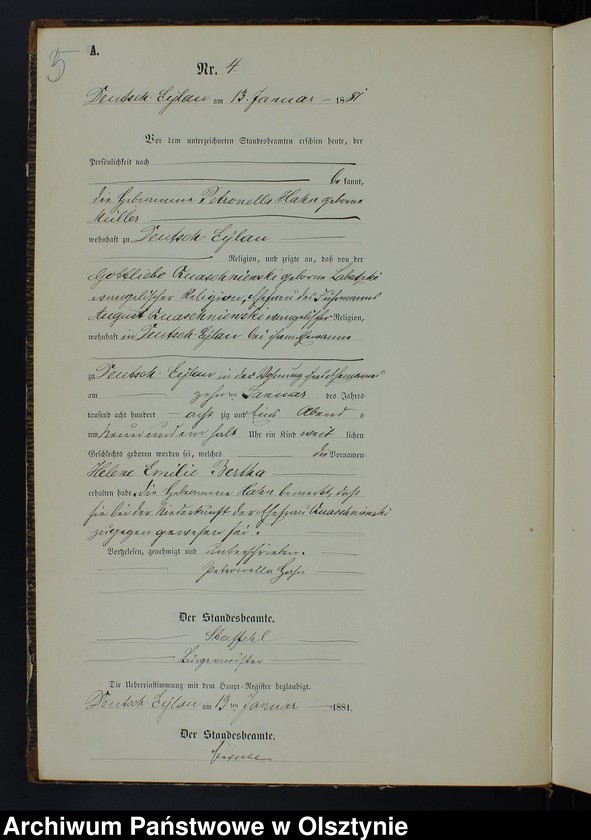 5
A.
Nr. 4.
Deutsch-Eylau am 13. Januar 1881
Vor dem unterzeichneten Standesbeamten erschien heute, der
Persönlichkeit nach
be kannt,
die Hebeamme Petronella Hahn geborne
Müller
wohnhaft zu Deutsch-Eylau
Religion, und zeigte an, daß von der
Gottliebe Quaschnienski geborne
evangelischer Religion, Ehefrau des Fuhrmanns
August Quaschnienski evangelischer Religion,
wohnhaft in Deutsch Eylau bei ihrem Ehemanne
zu Deutsch-Eylau in der Wohnung ihres Ehemannes
am zehn ten Januar des Jahres
tausend acht hundert acht zig und Eins Abend s
um neun und ein halb Uhr ein Kind weib lichen
Geschlechts geboren worden sei, welches die Vornamen
Helene Emilie Bertha
erhalten habe. Die Hebeamme Hahn bemerkt, daß
sie bei der Niederkunft der Ehefrau Quaschnienski
zugegen gewesen sei.
Vorgelesen, genehmigt und unterschrieben.
Petronella Hahn
Der Standesbeamte.
Bürgermeister
Die Uebereinstimmung mit dem Haupt-Register beglaubigt.
Deutsch-Eylau am 13 ten Januar 1881.
Der Standesbeamte.
Archiwum Państwowe w Olsztynie